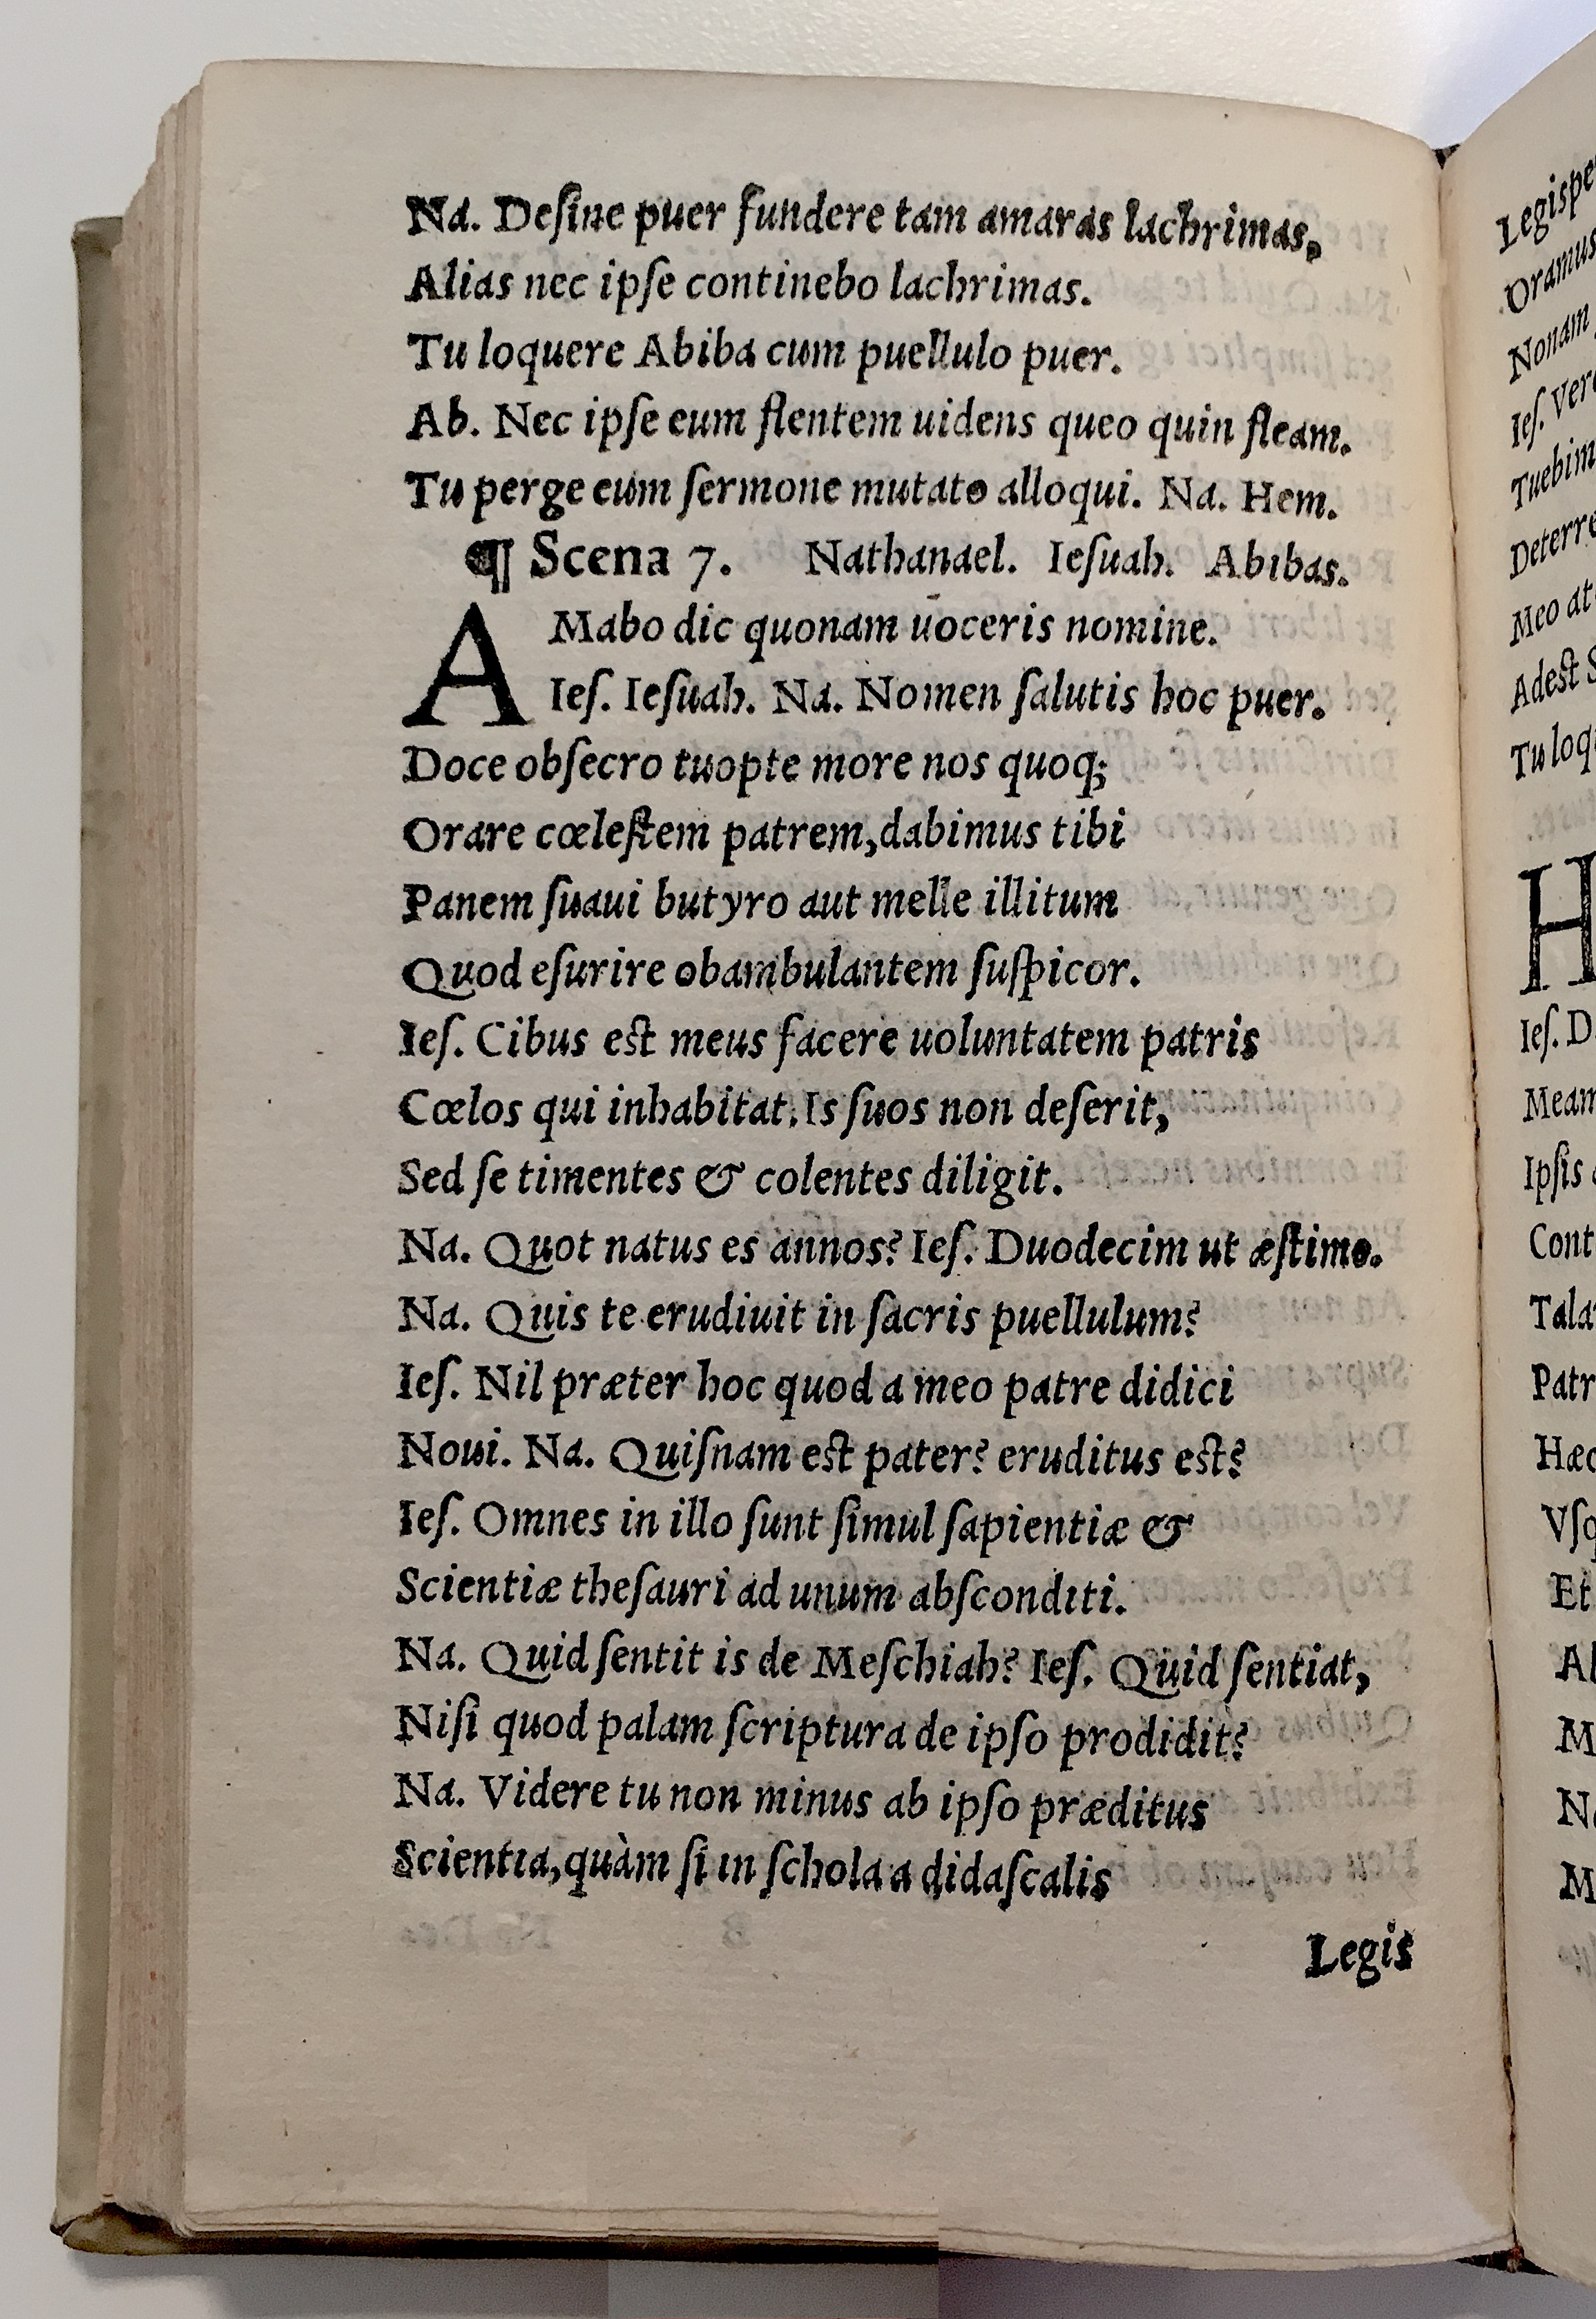 Na. Deſine puer fundere tam amaras lachrimas,
Alias nec ipſe continebo lachrimas.
Tu loquere Abiba cum puellulo puer.
Ab. Nec ipſe eum flentem uidens queo quin fleam.
Tu perge eum ſermone mutato alloqui. Na. Hem.
¶ Scena 7. Nathanael. Ieſuah. Abibas.
AMabo dic quonam uoceris nomine.
Ieſ. Ieſuah. Na. Nomen ſalutis hoc puer.
Doce obſecro tuopte more nos quoq;
Orare cœleſtem patrem, dabimus tibi
Panem ſuaui butyro aut melle illitum
Quod eſurire obambulantem ſuſpicor.
Ieſ. Cibus est meus facere uoluntatem patris
Cœlos qui inhabitat. Is ſuos non deſerit,
Sed ſe timentes & colentes diligit.
Na. Quot natus es annos? Ieſ. Duodecim ut æſtimo.
Na. Quis te erudiuit in ſacris puellulum?
Ieſ. Nil præter hoc quod a meo patre didici
Noui. Na. Quiſnam est pater? eruditus est?
Ieſ. Omnes in illo ſunt ſimul ſapientiæ &
Scientiæ theſauri ad unum abſconditi.
Na. Quid ſentit is de Meſchiah? Ieſ. Quid ſentiat,
Niſi quod palam ſcriptura de ipſo prodidit?
Na. Videre tu non minus ab ipſo præditus
Scientia, quàm ſi in ſchola a didaſcalis
Legis
Oramus
Nonam
Ieſ.
Meo
Adest
H
Ieſ.
Ipſis
Et